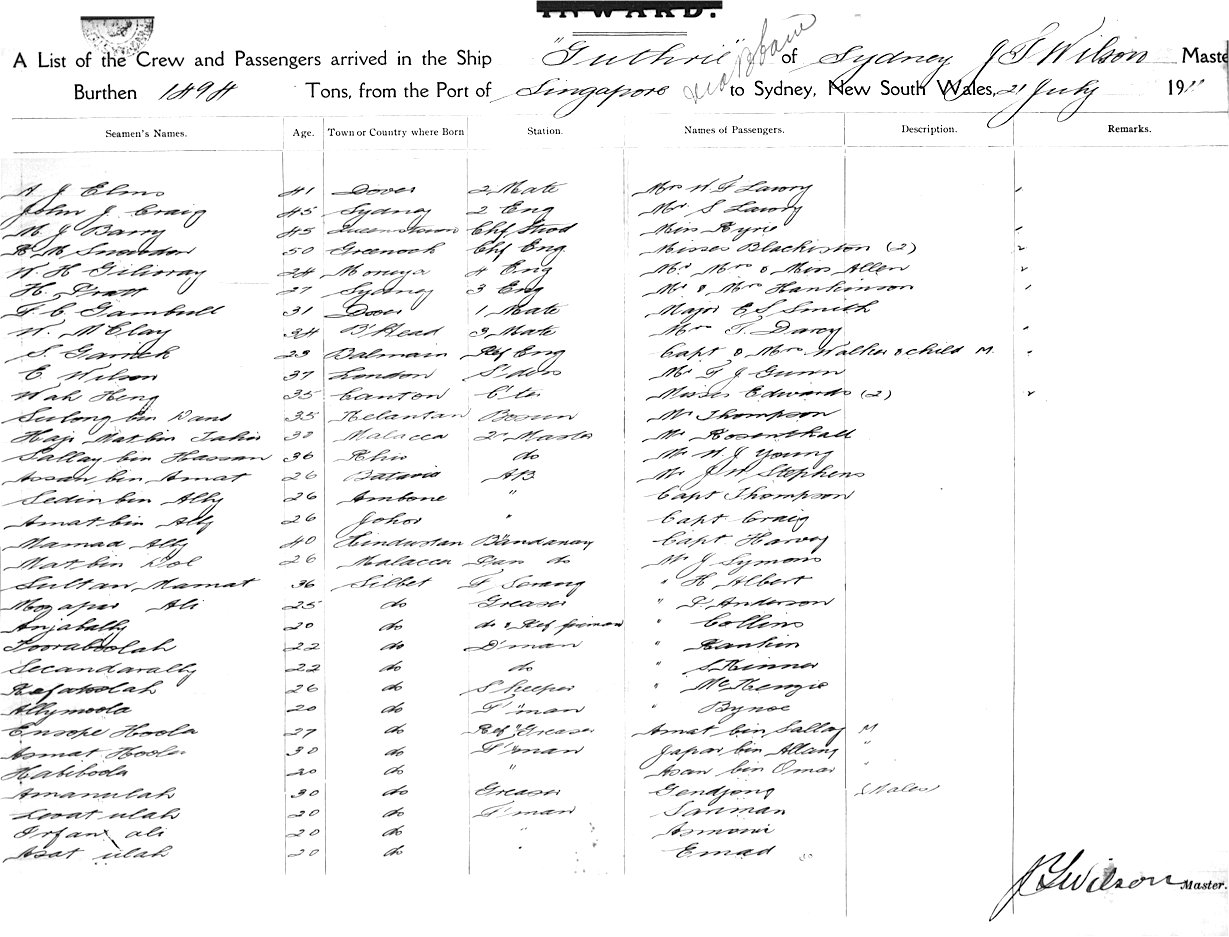 INWARD.
A List of the Crew and Passengers arrived in the Ship "Guthrie" of Sydney J G Wilson Maste
Burthen 1494 Tons, from the Port of Singapore via to Sydney, New South Wales, 21 July 191
Seamen's Names. Age. Town or Country where Born Station. Names of Passengers. Description. Remarks.
A J Elms 41 Dover 2 Mate Mrs W F Lawry
John J Craig 45 Sydney 2 Eng Mr S Lawry
M J Barry 45 Queenstown Chf Stwd Miss Ryne
R M Snowdon 50 Greenock Chf Eng Misses Blackiston (2)
W H Gilivray 24 Moruya 4 Eng Mr Mrs & Miss Allen
H Pratt 27 Sydney 3 Eng Mr & Mrs Hankinson
F C Gambull 31 Dover 1 Mate Major E S Smith
W. McClay 34 B'Head 3 Mate Mrs T. Darcy
S. Garrick 23 Balmain Ref Eng Capt & Mrs Walker & child M.
E Wilson 37 London S'dess Mr F J Gunn
Wah Heng 35 Canton C'ter Misses Edwards (2)
Sulong bin Daud 35 Kelantan Bosun Mr Thompson
Haji Mat bin Tahir 30 Malacca 2r Master Mr Rosenthall
Sallay bin Hassan 36 Rhio do Mr W J Young
Assan bin Amat 26 Batavia AB Mr J W Stephens
Sedin bin Ally 26 Ambone " Capt Thompson
Amat bin Ally 26 Johor " Capt Craig
Mamad Ally 40 Hindustan Bandanay Capt Harvey
Mat bin Dol 26 Malacca Pan do Mr J Symons
Sultan Mamat 36 Silhet F Serang " H Albert
Mozapar Ali 25 do Greaser " P Anderson
Anjabally 20 do do & Ref fireman " Collins
Toorabollah 22 do D'man " Rankin
Secandarally 22 do do " Skinner
Rafatoolah 26 do S'keeper " McKenzie
Allymoola 20 do F'man " Bynoe
Ensope Hoola 27 do Ref Greaser Amat bin Sallay M
Asmat Hoola 30 do F'man Japar bin Allang "
Habiboola 20 do " Asan bin Omar "
Amanulah 30 do Greaser Gendjong Males
Looat ulah 20 do F'man Sariman
Irfan ali 20 do " Asmoni
Asat ulah 20 do " Emad
J G Wilson Master.